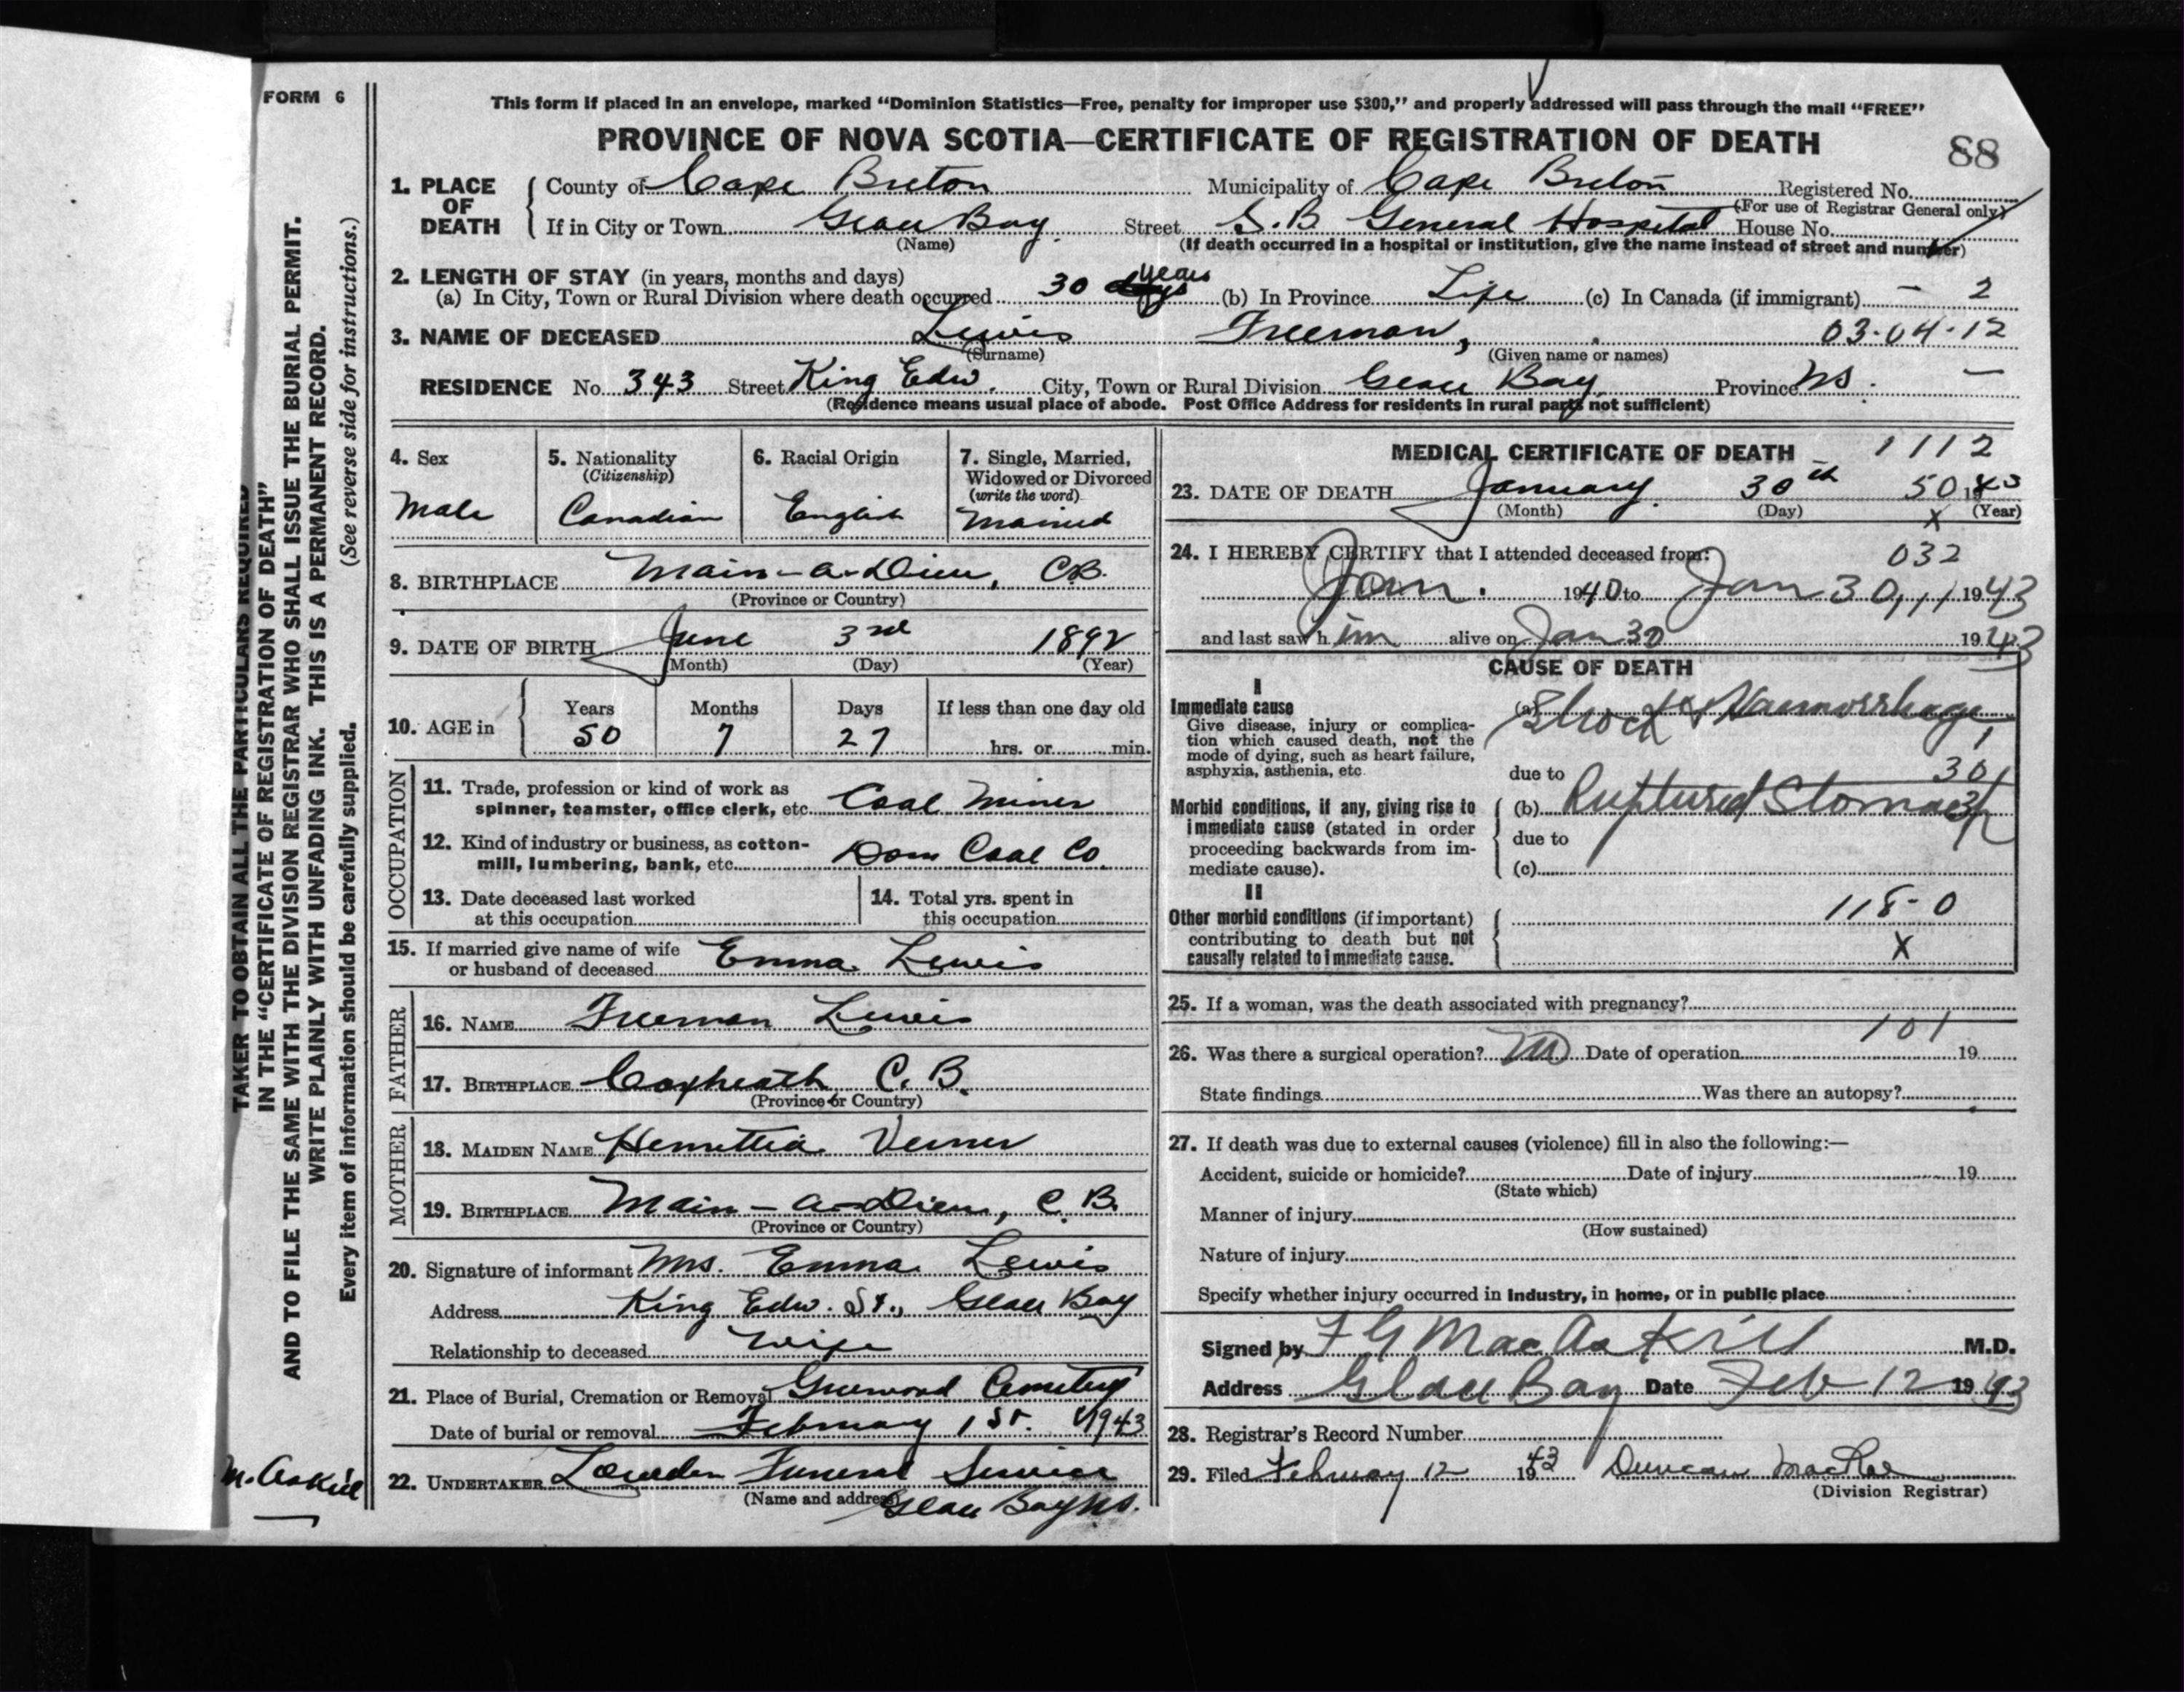 FORM 6
This form if placed in an envelope, marked “Dominion Statistics—Free, penalty for improper use $300,” and properly addressed will pass through the mail “FREE”
PROVINCE OF NOVA SCOTIA—CERTIFICATE OF REGISTRATION OF DEATH
88
1. PLACE OF DEATH { County of Cape Breton Municipality of Cape Breton Registered No.
(For use of Registrar General only)
If in City or Town Glace Bay Street G.B. General Hospital House No.
(Name) (If death occurred in a hospital or institution, give the name instead of street and number)
2. LENGTH OF STAY (in years, months and days)
(a) In City, Town or Rural Division where death occurred 30 years (b) In Province Life (c) In Canada (if immigrant) – 2
3. NAME OF DECEASED Lewis Freeman, 03-04-12
(Surname) (Given name or names)
RESIDENCE No. 343 Street King Edw. City, Town or Rural Division Glace Bay Province NS. —
(Residence means usual place of abode. Post Office Address for residents in rural parts not sufficient)
4. Sex Male
5. Nationality (Citizenship) Canadian
6. Racial Origin English
7. Single, Married, Widowed or Divorced (write the word) Married
8. BIRTHPLACE Main-a-Dieu, C.B.
(Province or Country)
9. DATE OF BIRTH June 3rd 1892
(Month) (Day) (Year)
10. AGE in { Years 50 Months 7 Days 27 If less than one day old
hrs. or min.
OCCUPATION
11. Trade, profession or kind of work as
spinner, teamster, office clerk, etc. Coal Miner
12. Kind of industry or business, as cotton-
mill, lumbering, bank, etc. Dom Coal Co.
13. Date deceased last worked
at this occupation
14. Total yrs. spent in
this occupation
15. If married give name of wife
or husband of deceased Emma Lewis
FATHER
16. NAME Freeman Lewis
17. BIRTHPLACE Coxheath C.B.
(Province or Country)
MOTHER
18. MAIDEN NAME Henrettia
19. BIRTHPLACE Main-a-Dieu, C.B.
(Province or Country)
20. Signature of informant Mrs. Emma Lewis
Address King Edw. St., Glace Bay
Relationship to deceased Wife
21. Place of Burial, Cremation or Removal Greenwood Cemetery
Date of burial or removal February 1st. 1943
22. UNDERTAKER Lowden Funeral Service
(Name and address) Glace Bay NS.
MEDICAL CERTIFICATE OF DEATH 1112
23. DATE OF DEATH January 30th 50 1943
(Month) (Day) X (Year)
24. I HEREBY CERTIFY that I attended deceased from: 032
Jan. 1940 to Jan 30, 1943
and last saw him alive on Jan 30 1943
CAUSE OF DEATH
I
Immediate cause
Give disease, injury or complica-
tion which caused death, not the
mode of dying, such as heart failure,
asphyxia, asthenia, etc
(a) Shock & Haemorrhage
due to 301
Morbid conditions, if any, giving rise to
immediate cause (stated in order
proceeding backwards from im-
mediate cause).
(b) Ruptured Stomach
due to
(c)
II
Other morbid conditions (if important)
contributing to death but not
causally related to immediate cause.
118-0
X
25. If a woman, was the death associated with pregnancy?
101
26. Was there a surgical operation? No Date of operation 19
State findings Was there an autopsy?
27. If death was due to external causes (violence) fill in also the following:—
Accident, suicide or homicide? Date of injury 19
(State which)
Manner of injury
(How sustained)
Nature of injury
Specify whether injury occurred in Industry, in home, or in public place
Signed by F G MacAskill M.D.
Address Glace Bay Date Feb 12 1943
28. Registrar's Record Number
29. Filed February 12 1943 Duncan MacRae
(Division Registrar)
TAKER TO OBTAIN ALL THE PARTICULARS REQUIRED
IN THE “CERTIFICATE OF REGISTRATION OF DEATH”
AND TO FILE THE SAME WITH THE DIVISION REGISTRAR WHO SHALL ISSUE THE BURIAL PERMIT.
WRITE PLAINLY WITH UNFADING INK. THIS IS A PERMANENT RECORD.
Every item of information should be carefully supplied. (See reverse side for instructions.)
McAskill